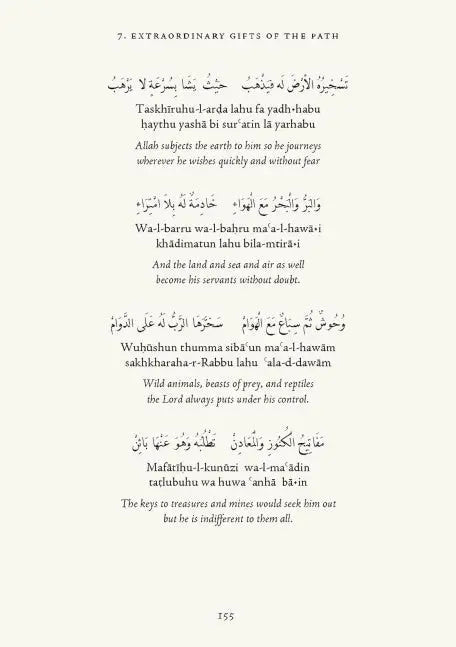 7. EXTRAORDINARY GIFTS OF THE PATH
تَسْخِيرُهُ الْأَرْضَ لَه فَيَذْهَبُ حَيْثُ يَشَا بِسُرْعَةٍ لَا يَرْهَبُ
Taskhīruhu-l-arḍa lahu fa yadh•habu
ḥaythu yashā bi surʿatin lā yarhabu
Allah subjects the earth to him so he journeys
wherever he wishes quickly and without fear
وَالْبَرُّ وَالْبَحْرُ مَعَ الْهَوَاءِ خَادِمَةٌ لَهُ بِلَا امْتِرَاءِ
Wa-l-barru wa-l-baḥru maʿa-l-hawā•i
khādimatun lahu bila-mtirā•i
And the land and sea and air as well
become his servants without doubt.
وُحُوشٌ ثُمَّ سِبَاعٌ مَعَ الْهَوَامْ سَخَّرَهَا الرَّبُّ لَهُ عَلَى الدَّوَامْ
Wuḥūshun thumma sibāʿun maʿa-l-hawām
sakhkharaha-r-Rabbu lahu ʿala-d-dawām
Wild animals, beasts of prey, and reptiles
the Lord always puts under his control.
مَفَاتِيحُ الْكُنُوزِ وَالْمَعَادِنْ تَطْلُبُهُ وَهُوَ عَنْهَا بَائِنْ
Mafātīḥu-l-kunūzi wa-l-maʿādin
taṭlubuhu wa huwa ʿanhā bā•in
The keys to treasures and mines would seek him out
but he is indifferent to them all.
155